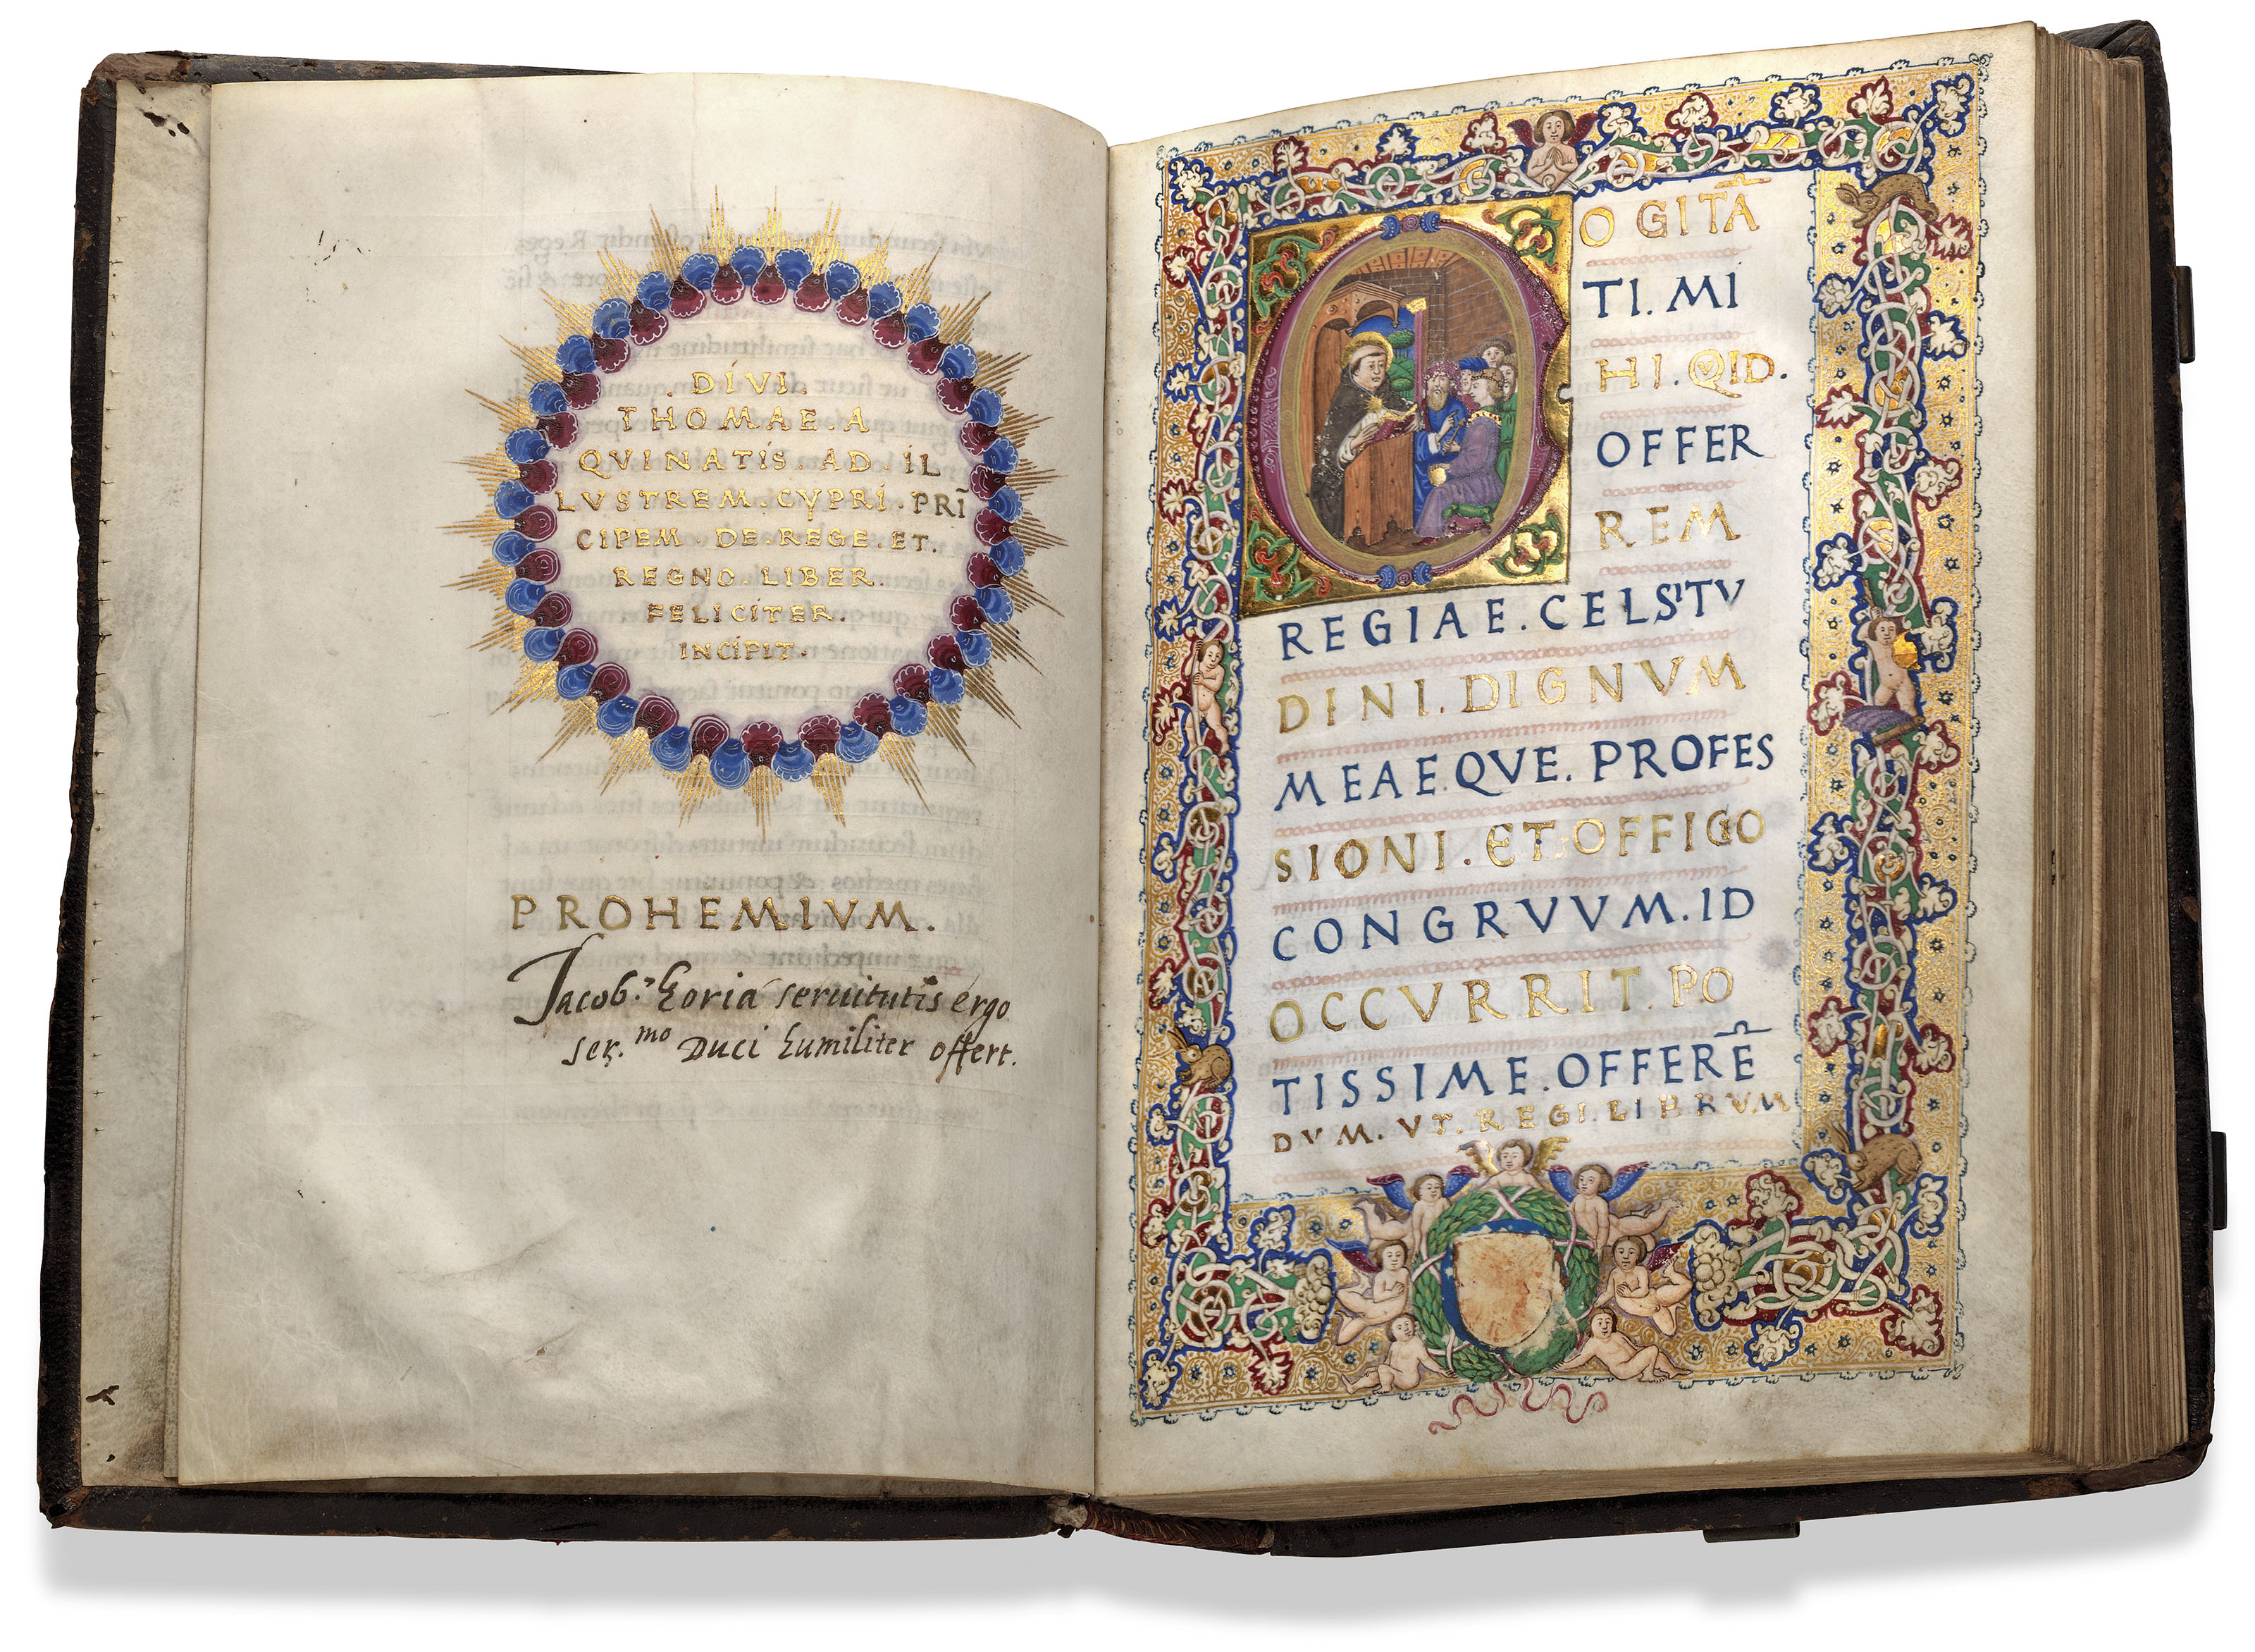 . DIVI.
THOMAE. A
QVINATIS. AD. IL
LVSTREM. CYPRI. PRĪ
CIPEM. DE. REGE. ET.
REGNO. LIBER.
FELICITER.
INCIPIT.
PROHEMIVM.
Jacob.' Zoria seruitutis ergo
ser.mo Duci humiliter offert.
COGITĀ
TI. MI
HI. QID.
OFFER
REM
REGIAE. CELSITV
DINI. DIGNVM
MEAE. QVE. PROFES
SIONI. ET. OFFICIO
CONGRVVM. ID
OCCVRRIT. PO
TISSIME. OFFERĒ
DVM. VT. REGI. LIBRVM